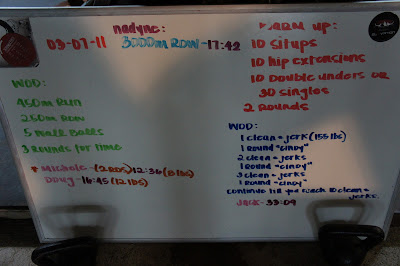 nadyne:
09-07-11 3000m ROW - 17:42
WOD:
450m RUN
250m ROW
5 Wall Balls
3 Rounds for time
* Michole - (2 RDS) 12:36 (8 lbs)
DOUG - 16:45 (12 lbs)
WARM UP:
10 situps
10 hip extensions
10 Double unders OR
30 singles
2 Rounds
WOD:
1 clean + jerk (155 lbs)
1 Round "cindy"
2 clean + jerks
1 Round "cindy"
3 clean + jerks
1 Round "cindy"
continue till you reach 10 clean +
jerks.
JACK - 33:09